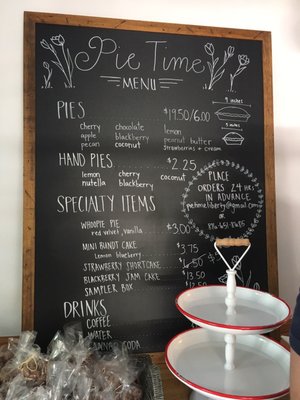 Pie Time
MENU
PIES $19.50/6.00
9 inches
5 inches
cherry chocolate lemon
apple blackberry peanut butter
pecan coconut strawberries + cream
HAND PIES $2.25
lemon cherry coconut
nutella blackberry
PLACE
ORDERS 24 hrs
IN ADVANCE
or
SPECIALTY ITEMS
WHOOPIE PIE $3.00
red velvet, vanilla
MINI BUNDT CAKE $3.75
Lemon blueberry
STRAWBERRY SHORTCAKE
BLACKBERRY JAM CAKE
SAMPLER BOX
DRINKS
COFFEE
WATER
SODA